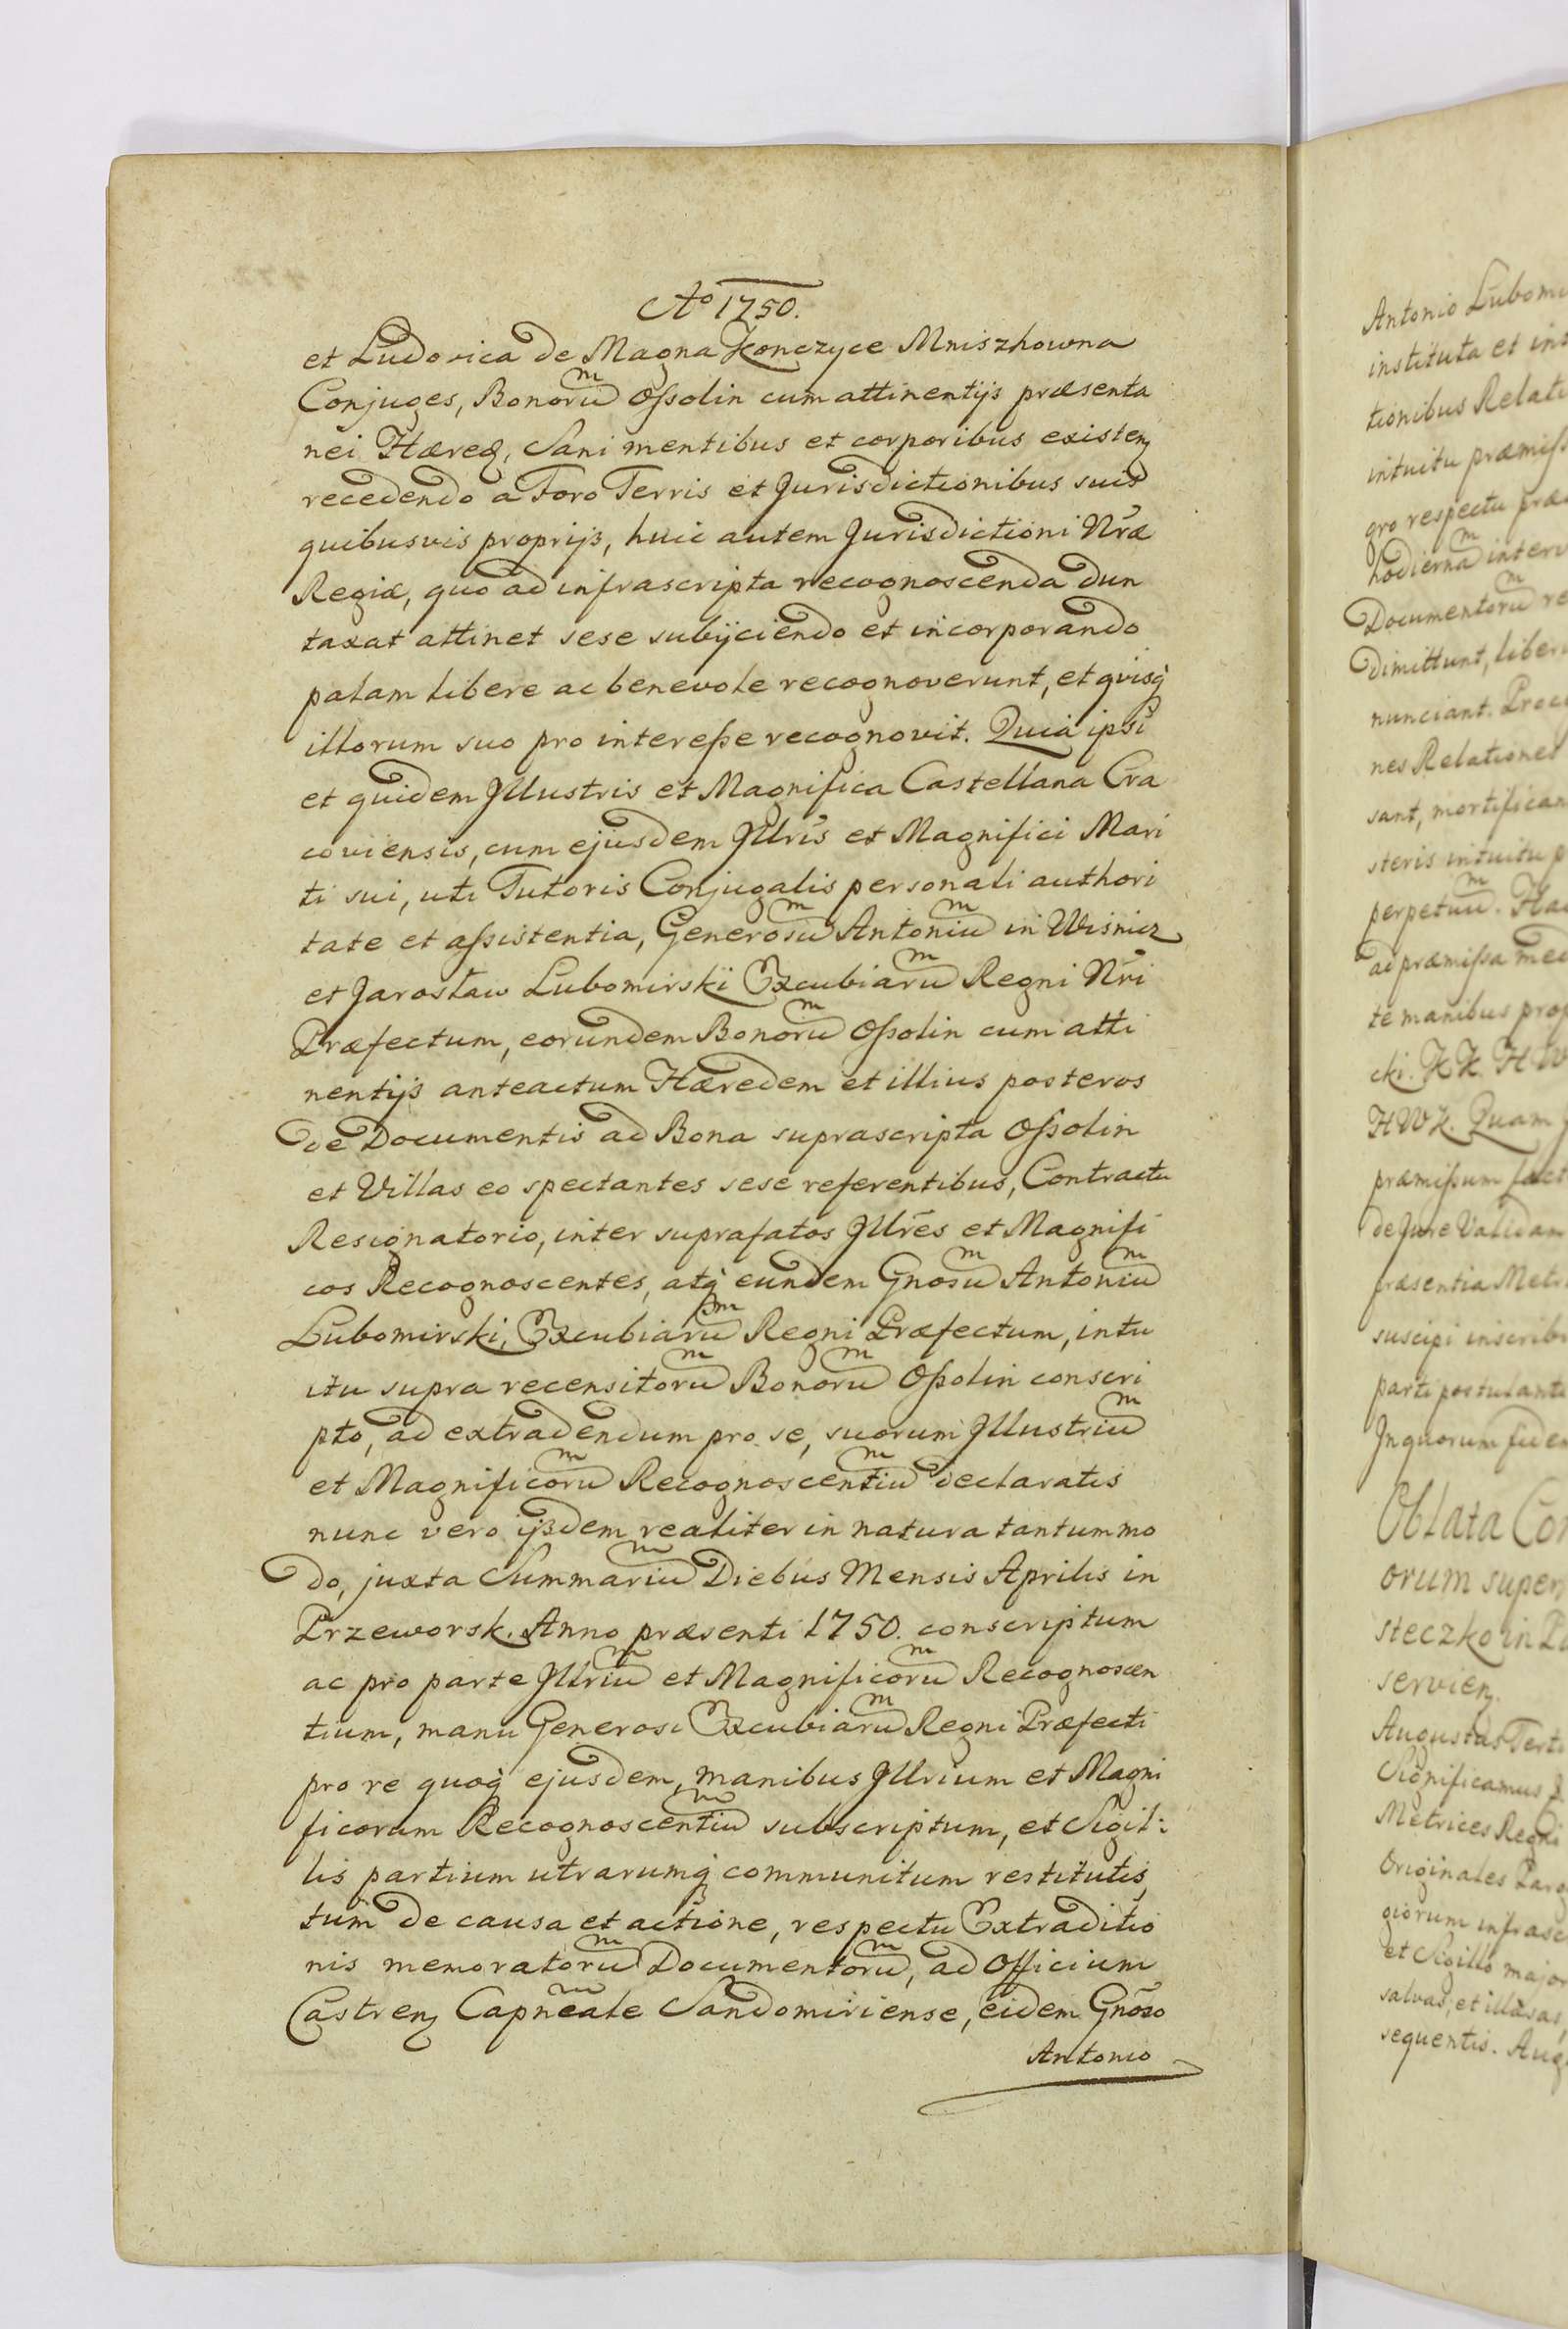 Aᵒ 1750.
et Ludovica de Magna Konczyce Mniszhowna
Conjuges, Bonoruᵐ Ossolin cum attinentijs præsenta
nei Hæreꝗ, Sani mentibus et corporibus existenꝫ
recedendo a Foro Terris et Jurisdictionibus suis
quibusvis proprijs, huic autem Jurisdictioni Nr̃æ
Regiæ, quo ad infrascripta recognoscenda dun
taxat attinet sese subijciendo et incorporando
palam libere ac benevole recognoverunt, et qvisq̀
illorum suo pro interesse recognovit. Quia ipsi
et quidem Jllustris et Magnifica Castellana Cra
coviensis, cum ejusdem Jllr̃is et Magnifici Mari
ti sui, uti Tutoris Conjugalis personali authori
tate et assistentia, Generosuᵐ Antoniuᵐ in Wisnicz
et Jarosław Lubomirski Excubiaruᵐ Regni Nr̃i
Præfectum, eorundem Bonoruᵐ Ossolin cum atti
nentijs anteactum Hæredem et illius posteros
de Documentis ad Bona suprascripta Ossolin
et Villas eo spectantes sese referentibus, Contractu
Resignatorio, inter suprafatos Jllr̃es et Magnifi
cos Recognoscentes, atq̀ eundem Gnosuᵐ Antoniuᵐ
Lubomirski, Excubiaruᵐ Regni Præfectum, intu
itu supra recensitoruᵐ Bonoruᵐ Ossolin conscri
pto, ad extradendum pro se, suorum Jllustriuᵐ
et Magnificoruᵐ Recognoscentiuᵐ declaratis
nunc vero ijsdem realiter in natura tantummo
do, juxta Summariuᵐ Diebus Mensis Aprilis in
Przeworsk. Anno præsenti 1750. conscriptum
ac pro parte Jllriuᵐ et Magnificoruᵐ Recognoscen
tium, manu Generosi Excubiaruᵐ Regni Præfecti
pro re quoq̀ ejusdem, manibus Jllrium et Magni
ficorum Recognoscentiuᵐ subscriptum, et Sigil:
lis partium utrarumq̀ communitum restitutis,
tum de causa et actione, respectu Extraditio
nis memoratoruᵐ Documentoruᵐ, ad Officium
Castrenꝫ Capnẽale Sandomiriense, eidem Gnõso
Antonio
Antonio Lubomi
instituta et ins
tionibus Relati
intuitu præmiss
gro respectu præ
hodiernaᵐ interv
Documentoruᵐ re
Dimittunt, liber
nunciant. Proc
nes Relationes
sant, mortifican
steris intuitu p
perpetuuᵐ. Ha
ad præmissa med
te manibus prop
cki. HW
HWK. Quam
præmissum fact
de Jure Validam
præsentia Metr
suscipi inscribi
parti postulanti
Jn quorum fidem
Oblata Con
orum super
steczko in P
servienꝫ.
Augustus Terti
Significamus
Metrices Regni
Originales Parg
giorum infrasc
et Sigillo major
salvas, et illæsas,
sequentis. Aug